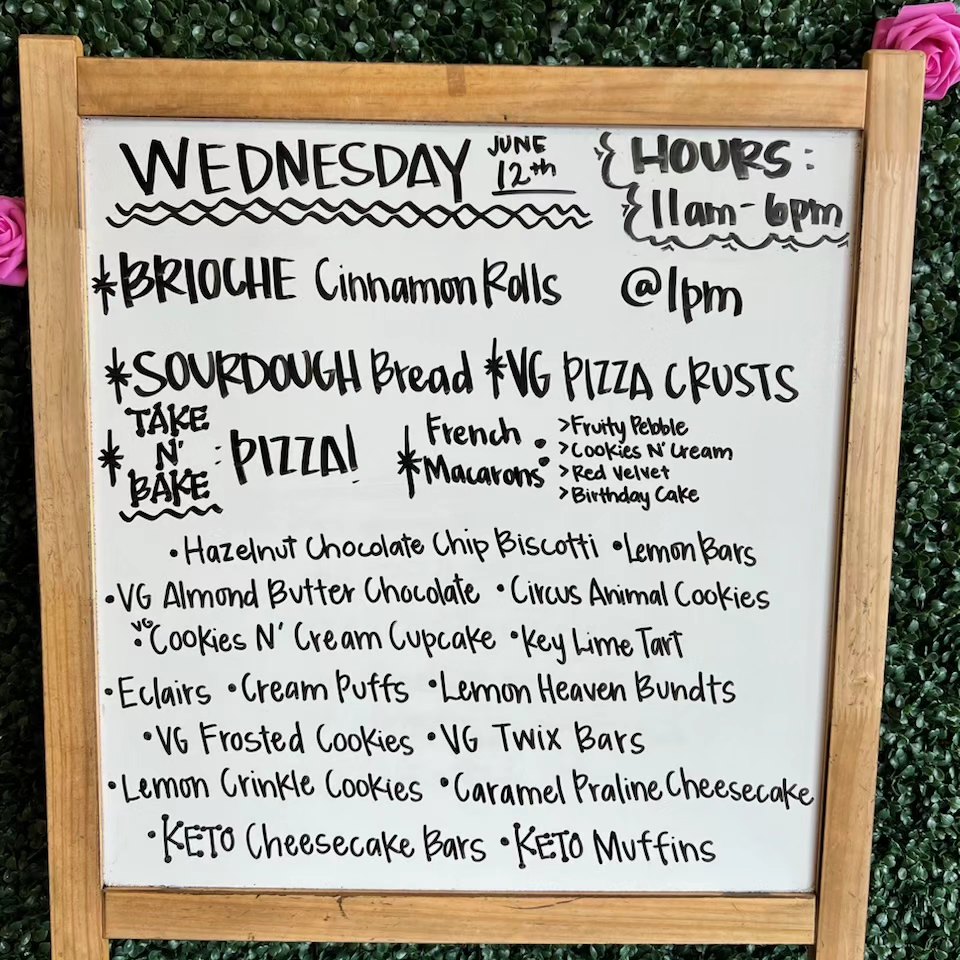 WEDNESDAY JUNE 12th HOURS:
11am-6pm
*BRIOCHE Cinnamon Rolls @1pm
*SOURDOUGH Bread *VG PIZZA CRUSTS
* TAKE N' BAKE : PIZZA!
* French Macarons :
>Fruity Pebble
>Cookies N' Cream
>Red Velvet
>Birthday Cake
•Hazelnut Chocolate Chip Biscotti •Lemon Bars
•VG Almond Butter Chocolate •Circus Animal Cookies
•VG Cookies N' Cream Cupcake •Key Lime Tart
•Eclairs •Cream Puffs •Lemon Heaven Bundts
•VG Frosted Cookies •VG Twix Bars
•Lemon Crinkle Cookies •Caramel Praline Cheesecake
•KETO Cheesecake Bars •KETO Muffins